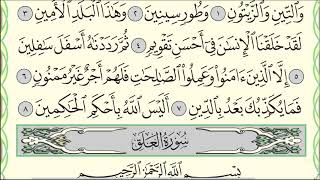 وَٱلتِّينِ وَٱلزَّيْتُونِ ١ وَطُورِ سِينِينَ ٢ وَهَٰذَا ٱلْبَلَدِ ٱلْأَمِينِ ٣
لَقَدْ خَلَقْنَا ٱلْإِنسَٰنَ فِىٓ أَحْسَنِ تَقْوِيمٍ ٤ ثُمَّ رَدَدْنَٰهُ أَسْفَلَ سَٰفِلِينَ
٥ إِلَّا ٱلَّذِينَ ءَامَنُوا۟ وَعَمِلُوا۟ ٱلصَّٰلِحَٰتِ فَلَهُمْ أَجْرٌ غَيْرُ مَمْنُونٍ ٦
فَمَا يُكَذِّبُكَ بَعْدُ بِٱلدِّينِ ٧ أَلَيْسَ ٱللَّهُ بِأَحْكَمِ ٱلْحَٰكِمِينَ ٨
سُورَةُ ٱلْعَلَقِ
بِسْمِ ٱللَّهِ ٱلرَّحْمَٰنِ ٱلرَّحِيمِ